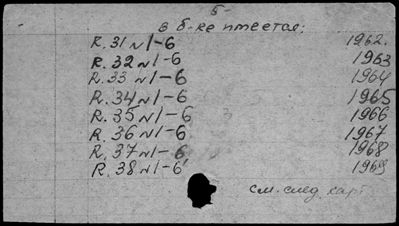 5-
в б-ке имеется:
R. 31 N 1-6 1962.
R. 32 N 1-6 1963
R. 33 N 1-6 1964
R. 34 N 1-6 1965
R. 35 N 1-6 1966
R. 36 N 1-6 1967
R. 37 N 1-6 1968
R. 38 N 1-6 1969
см. след. карт